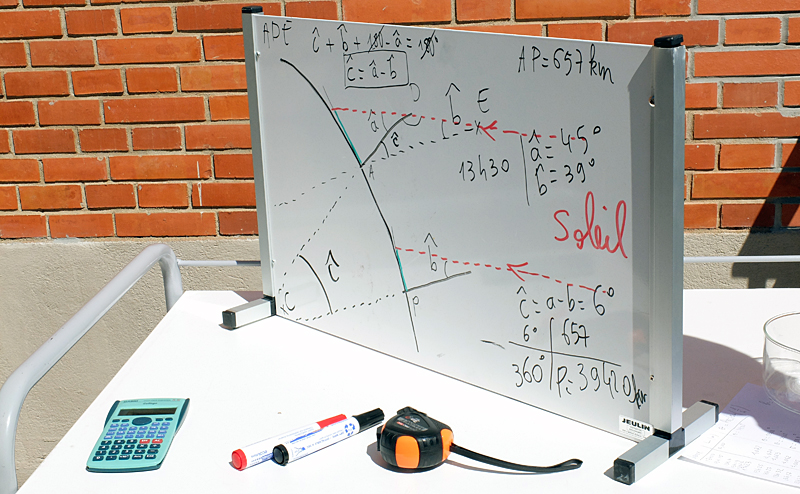 ADE
ĉ + b̂ + 180 - â = 180
ĉ = â - b̂
AP = 657 km
D
b̂
E
â
ĉ
A
13h30
â = 45°
b̂ = 39°
Soleil
ĉ
C
b̂
P
ĉ = a - b = 6°
6° | 657
360° | P = 39420 km
JEULIN